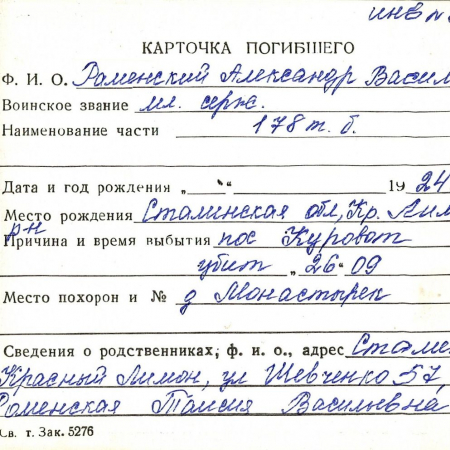 инв №
КАРТОЧКА ПОГИБШЕГО
Ф. И. О. Раменский Александр Васил
Воинское звание мл. серж.
Наименование части 178 т. б.
Дата и год рождения „ “ 1924
Место рождения Сталинская обл, Кр. Лим
рн
Причина и время выбытия пос Куроват
убит „26“ 09
Место похорон и № д Монастырек
Сведения о родственниках, ф. и. о., адрес
Красный Лиман, ул Шевченко 57,
Роменская Таисия Васильевна
Св. т. Зак. 5276